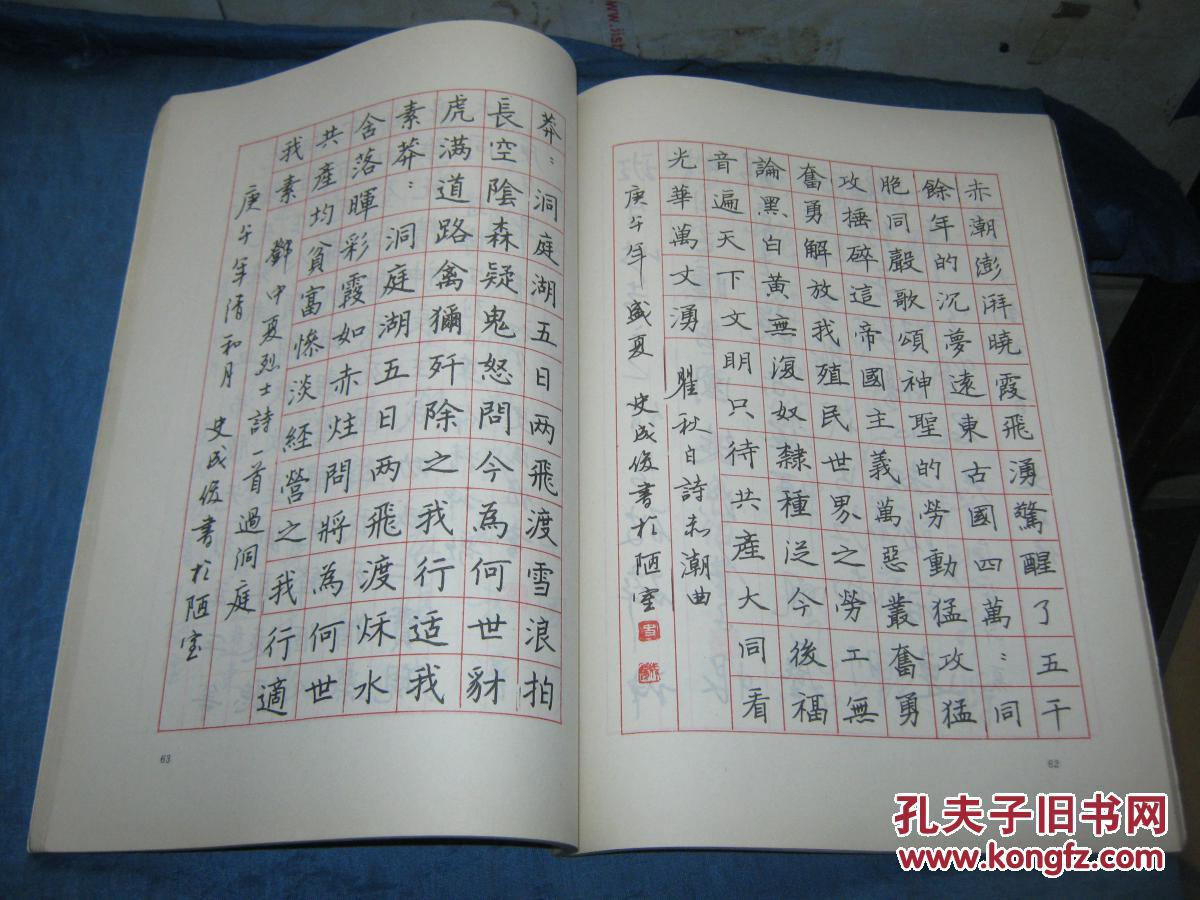 赤潮澎湃曉霞飛湧驚醒了五千
餘年的沉夢遠東古國四萬:同
胞同聲歌頌神聖的勞動猛攻猛
攻捶碎這帝國主義萬惡叢奮勇
奮勇解放我殖民世界之勞工無
論黑白黃無復奴隸種從今後福
音遍天下文明只待共產大同看
光華萬丈湧 瞿秋白詩赤潮曲
庚午年盛夏 史成俊書於陋室
62
莽:洞庭湖五日两飛渡雪浪拍
長空陰森疑鬼怒問今為何世豺
虎满道路禽獮歼除之我行适我
素莽:洞庭湖五日两飛渡秌水
含落暉彩霞如赤炷問將為何世
共產均貧富慘淡経營之我行適
我素 鄧中夏烈士詩一首過洞庭
庚午年清和月 史成俊書於陋室
63
孔夫子旧书网
www.kongfz.com